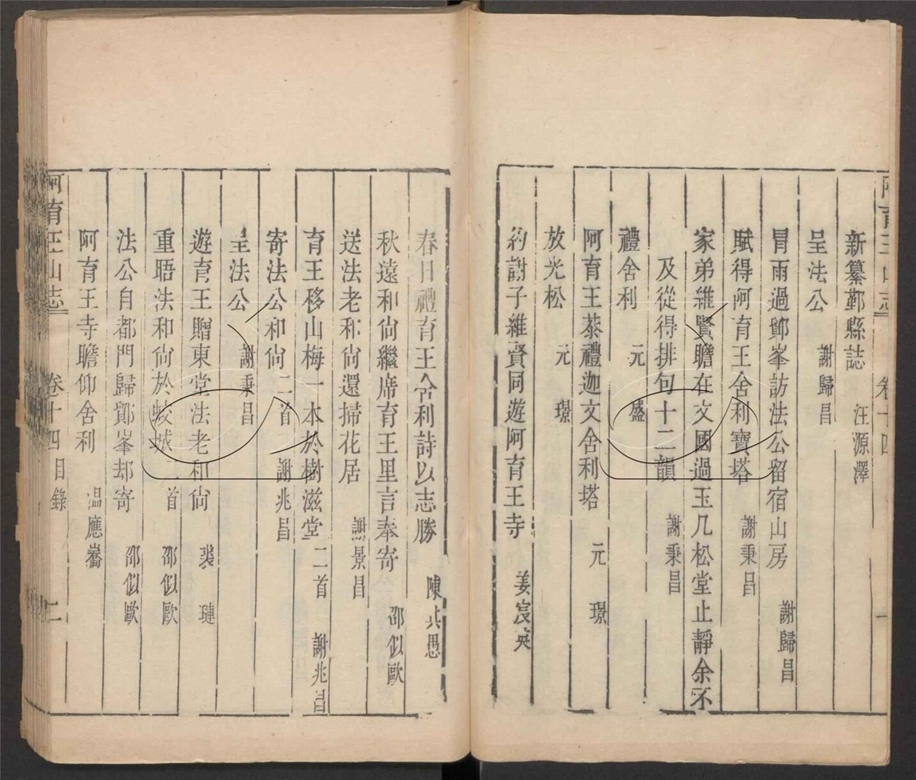 阿育王山志 卷十四 一
新纂鄞縣誌 汪源澤
呈法公 謝歸昌
冒雨過鄮峯訪法公留宿山房 謝歸昌
賦得阿育王舍利寶塔 謝秉昌
家弟維賢瞻在文國過玉几松堂止靜余不
及從得排句十二韻 謝秉昌
禮舍利 元盛
阿育王叅禮迦文舍利塔 元璟
放光松 元璟
約謝子維賢同遊阿育王寺 姜宸英
春日禮育王舍利詩以志勝 陳共愚
秋遠和尙繼席育王里言奉寄 邵似歐
送法老和尙還掃花居 謝景昌
育王移山梅一本於樹滋堂 二首 謝兆昌
寄法公和尙 二首 謝兆昌
呈法公 謝秉昌
遊育王贈東堂法老和尙 裘璉
重晤法和尙於蛟城 首 邵似歐
法公自都門歸鄮峯却寄 邵似歐
阿育王寺瞻仰舍利 温應嵩
阿育王山志 卷十四目錄 二